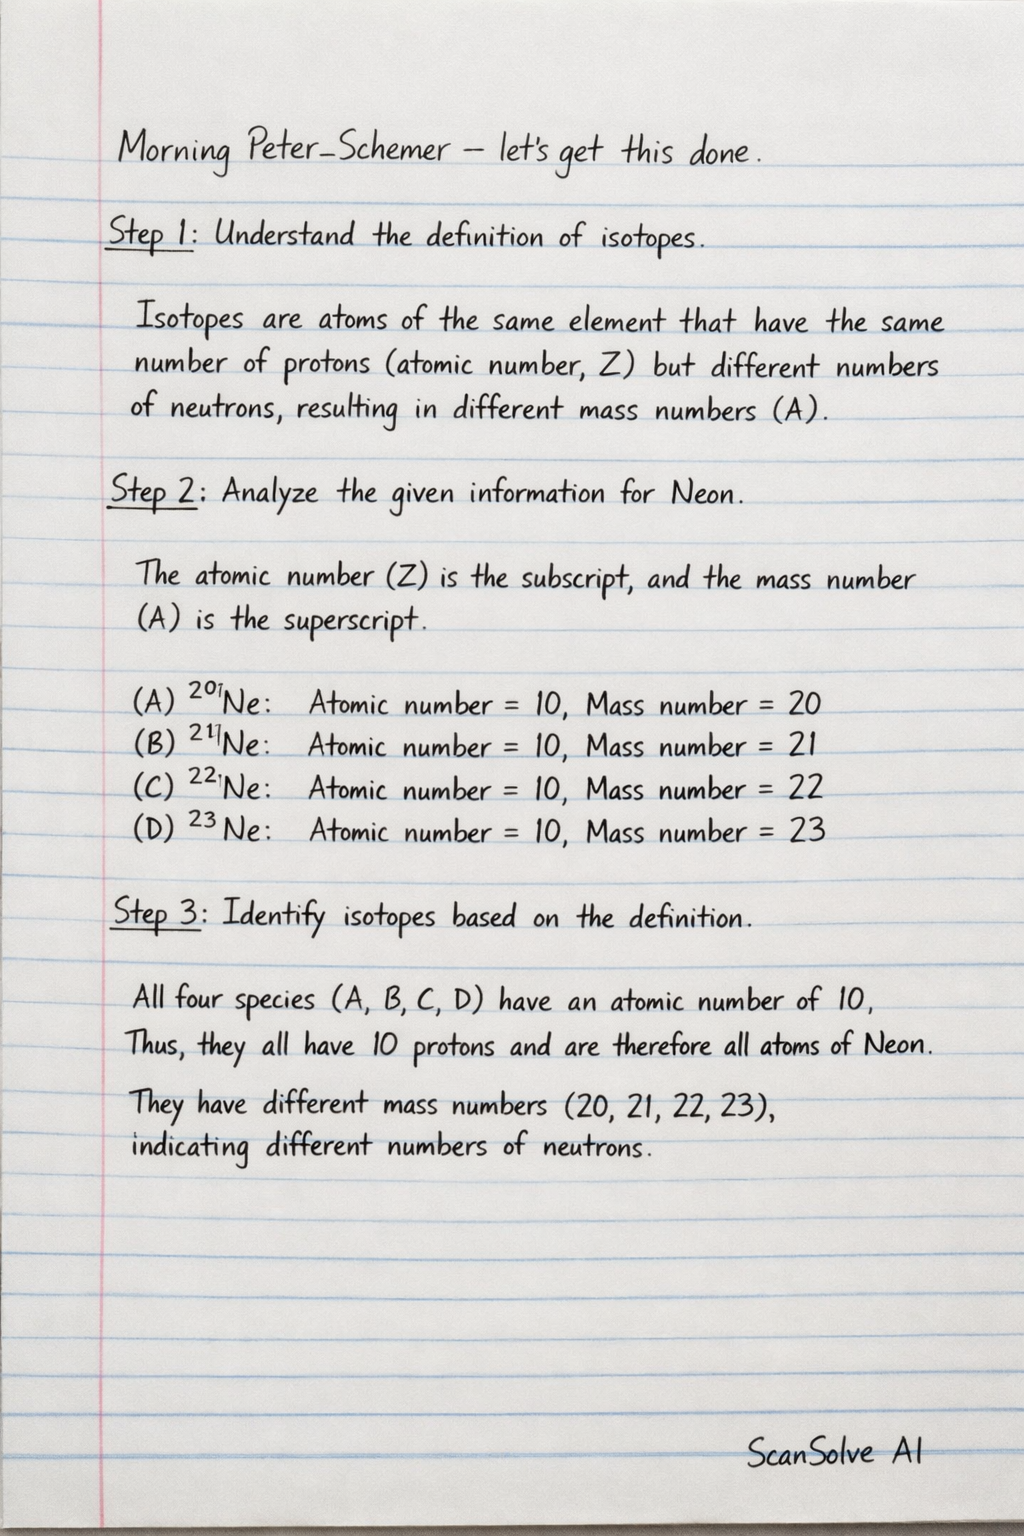 Morning Peter_Schemer – let's get this done.
Step 1: Understand the definition of isotopes.
Isotopes are atoms of the same element that have the same
number of protons (atomic number, Z) but different numbers
of neutrons, resulting in different mass numbers (A).
Step 2: Analyze the given information for Neon.
The atomic number (Z) is the subscript, and the mass number
(A) is the superscript.
(A) ²⁰Ne: Atomic number = 10, Mass number = 20
(B) ²¹Ne: Atomic number = 10, Mass number = 21
(C) ²²Ne: Atomic number = 10, Mass number = 22
(D) ²³Ne: Atomic number = 10, Mass number = 23
Step 3: Identify isotopes based on the definition.
All four species (A, B, C, D) have an atomic number of 10,
Thus, they all have 10 protons and are therefore all atoms of Neon.
They have different mass numbers (20, 21, 22, 23),
indicating different numbers of neutrons.
ScanSolve AI